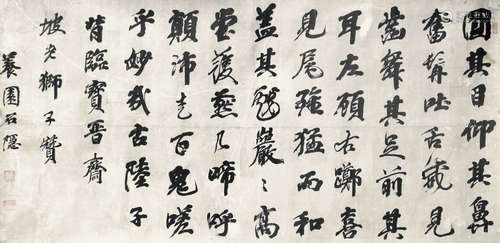 圓其目仰其鼻
奮髯吐舌威見
齒舞其足前其
耳左顧右擲喜
見尾雖猛而和
蓋其戲巖〻高
堂護燕几啼呼
顛沛走百鬼嗟
乎妙哉古陸子
背臨寶晉齋
坡老獅子贊
養園石隱